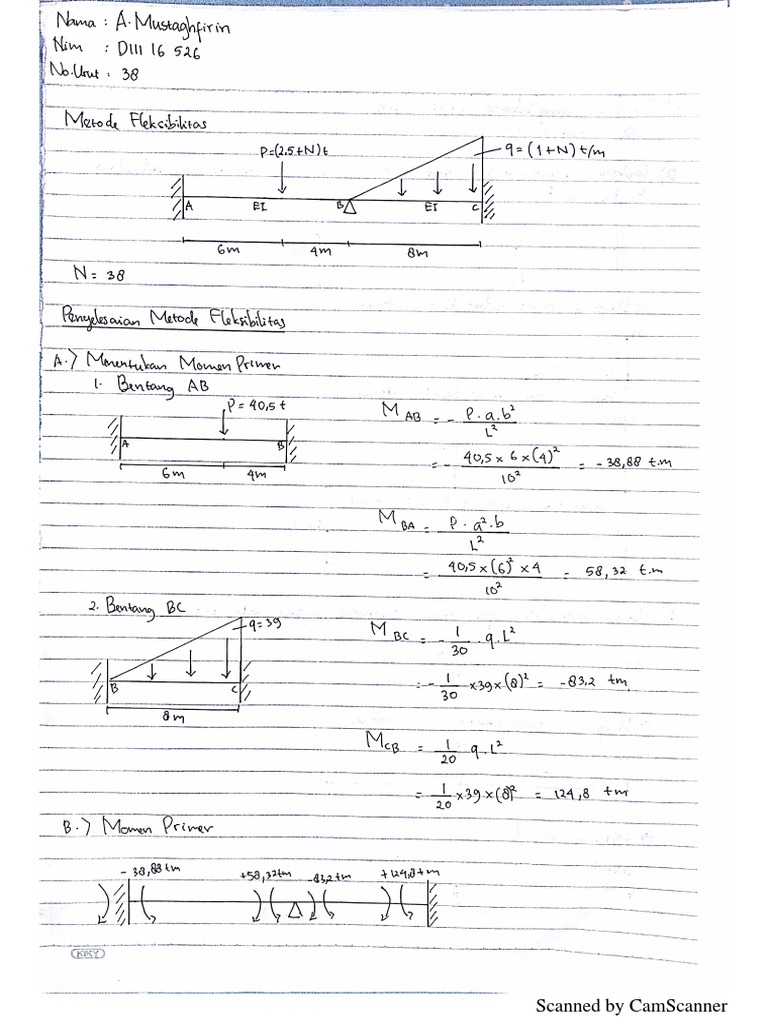 Nama : A. Mustaghfirin
Nim : DIII 16 526
No.Urut : 38
Metode Fleksibilitas
P=(2.5+N)t
q=(1+N) t/m
A EI B EI C
6m 4m 8m
N = 38
Penyelesaian Metode Fleksibilitas
A.) Menentukan Momen Primer
1. Bentang AB
P = 40,5 t
A B
6m 4m
M AB = - P.a.b² / L²
= - 40,5 x 6 x (4)² / 10² = -38,88 t.m
M BA = P.a².b / L²
= 40,5 x (6)² x 4 / 10² = 58,32 t.m
2. Bentang BC
q=39
B C
8m
M BC = - 1/30 q.L²
= - 1/30 x39x(8)² = -83,2 tm
M CB = 1/20 q.L²
= 1/20 x39x(8)² = 124,8 tm
B.) Momen Primer
-38,88 tm +58,32tm -83,2 tm +124,8 tm
KIKY
Scanned by CamScanner